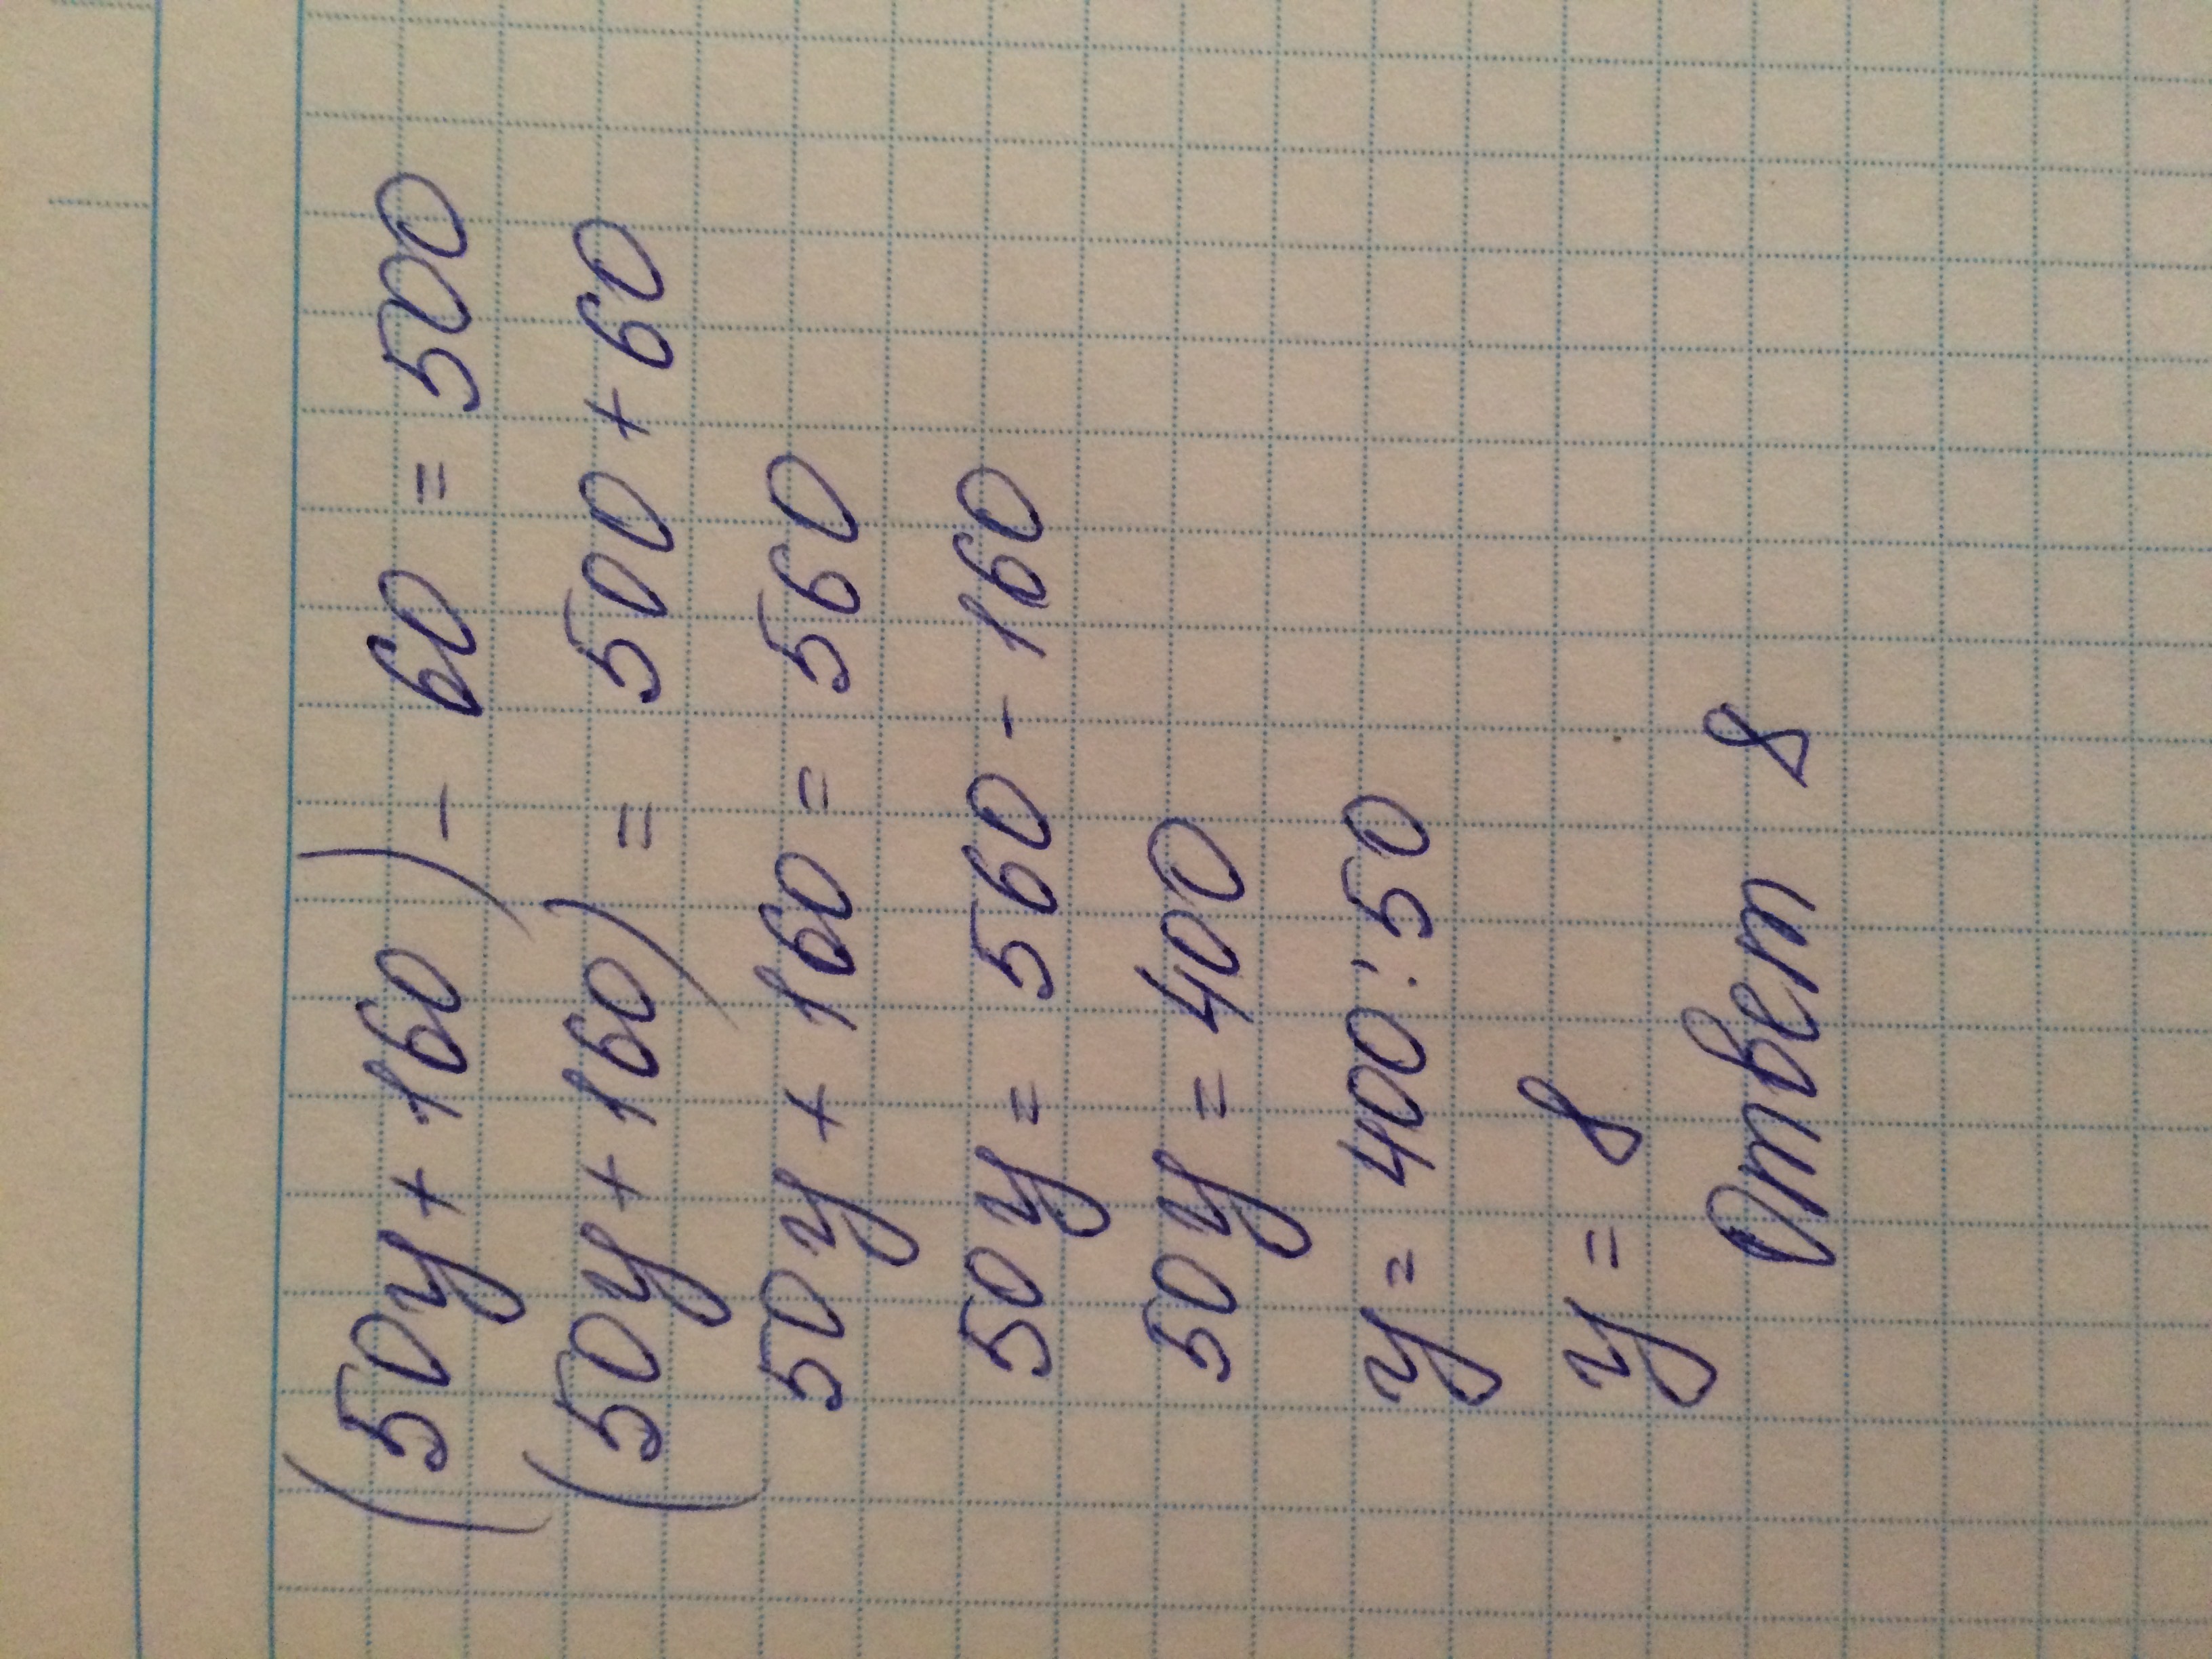 (50y + 160) - 60 = 500
(50y + 160) = 500 + 60
50y + 160 = 560
50y = 560 - 160
50y = 400
y = 400 : 50
y = 8
Ответ 8